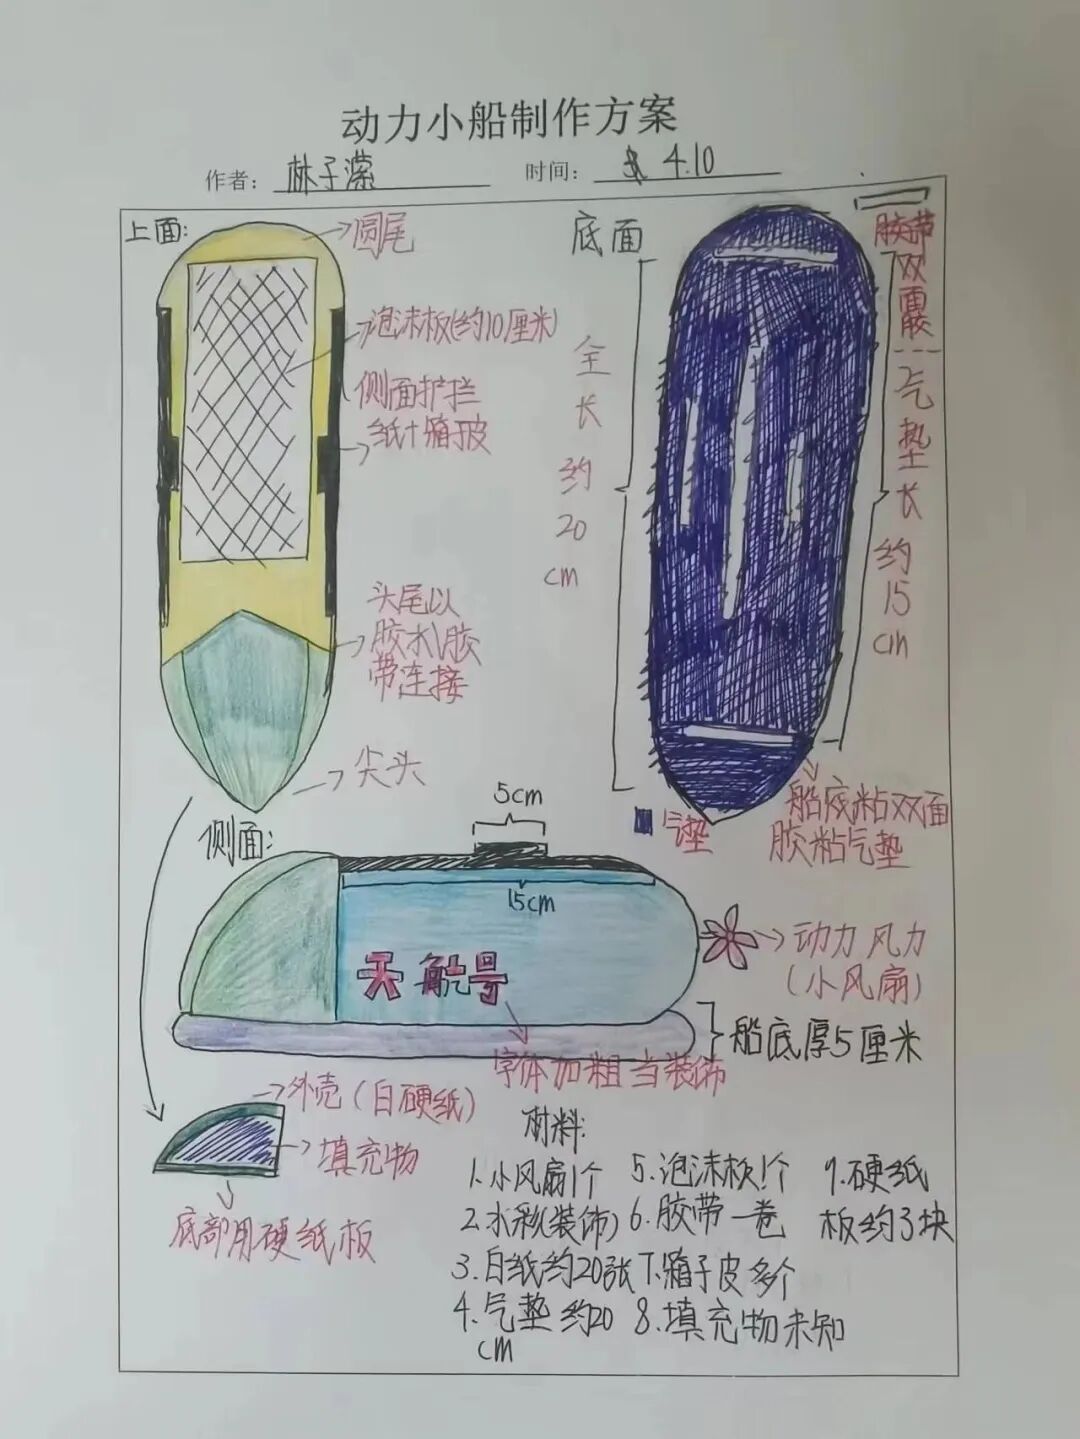 动力小船制作方案
作者：林子濴
时间：4.10
上面:
圆尾
泡沫板(约10厘米)
侧面护拦
纸+箱子皮
头尾以
胶水\胶
带连接
尖头
底面
全长约20cm
胶带
双面胶
气垫长约15cm
气垫
船底粘双面
胶粘气垫
侧面:
5cm
15cm
天航号
动力风力
(小风扇)
船底厚5厘米
字体加粗当装饰
外壳(白硬纸)
填充物
底部用硬纸板
材料:
1.小风扇1个
2.水彩(装饰)
3.白纸约20张
4.气垫约20
cm
5.泡沫板1个
6.胶带一卷
7.箱子皮多个
8.填充物未知
9.硬纸
板约3块